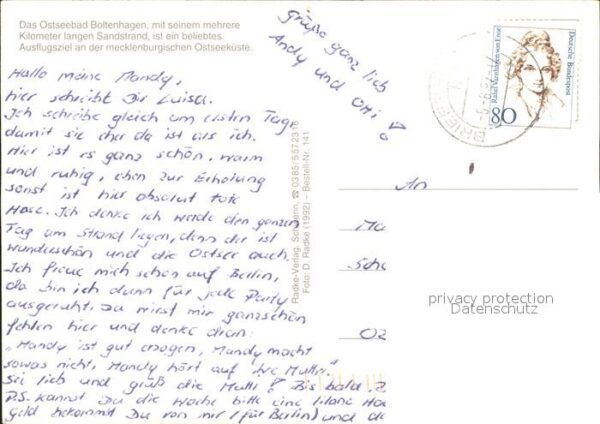 Das Ostseebad Boltenhagen, mit seinem mehrere
Kilometer langen Sandstrand, ist ein beliebtes
Ausflugsziel an der mecklenburgischen Ostseeküste.
Grüße ganz lieb
Andy und Otti
Hallo meine Mandy,
hier schreibt Dir Luisa.
Ich schreibe gleich am ersten Tag,
damit sie eher da ist als ich.
Hier ist es ganz schön, warm
und ruhig, eben zur Erholung
sonst ist hier absolut tote
Hose. Ich denke ich werde den ganzen
Tag am Strand liegen, denn der ist
wunderschön und die Ostsee auch.
Ich freue mich schon auf Berlin,
da bin ich dann für jede Party
ausgeruht. Du wirst mir ganz schön
fehlen hier und denke dran:
"Mandy ist gut erzogen, Mandy macht
sowas nicht, Mandy hört auf ihre Mutti."
Sei lieb und grüß die Mutti! Bis bald
P.S. kannst Du die Woche bitte eine
Geld bekommst Du von mir (für Berlin) und
Radke-Verlag, Schwerin, ☎ 0385/5572316
Foto: D. Radke (1992) – Bestell-Nr. 141
Deutsche Bundespost
Rahel Varnhagen von Ense
80
BRIEF
An
Ma
Sch
privacy protection
Datenschutz